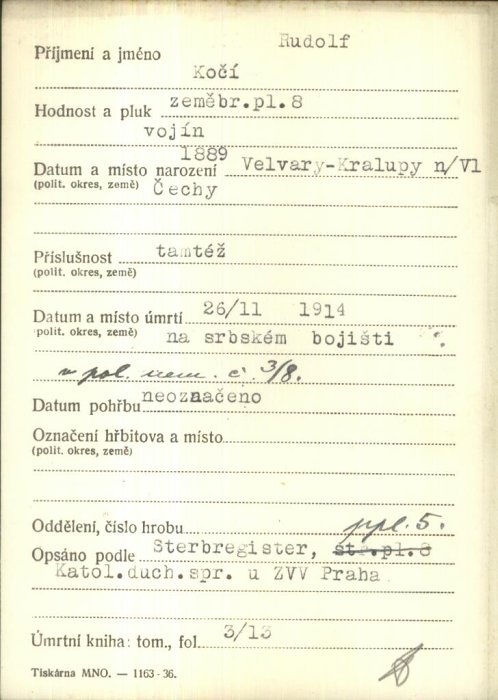 Rudolf
Příjmení a jméno
Kočí
Hodnost a pluk zeměbr.pl.8
vojín
1889
Datum a místo narození Velvary-Kralupy n/Vl
(polit. okres, země) Čechy
Příslušnost tamtéž
(polit. okres, země)
Datum a místo úmrtí 26/11 1914
(polit. okres, země) na srbském bojišti
v pol. nem. č. 3/8.
Datum pohřbu neoznačeno
Označení hřbitova a místo
(polit. okres, země)
Oddělení, číslo hrobu ppl. 5.
Opsáno podle Sterbregister, str.pl.8
Katol.duch.spr. u ZVV Praha
Úmrtní kniha: tom., fol. 3/13
Tiskárna MNO. — 1163-36.